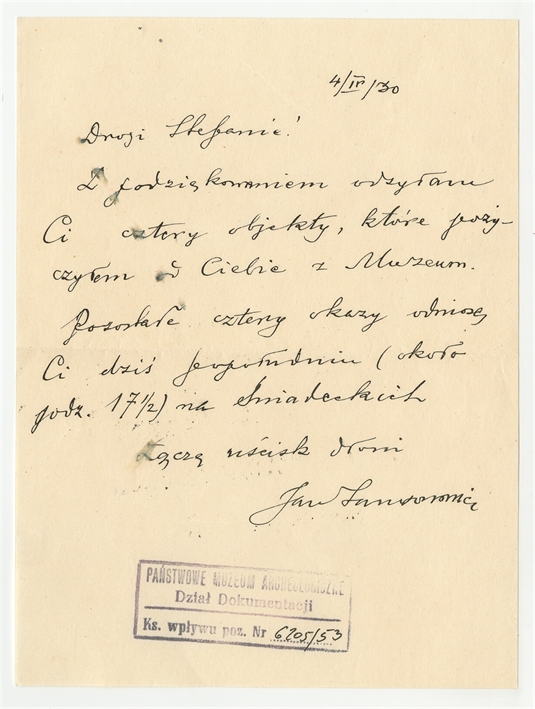 4/IV/30
Drogi Stefanie!
Z podziękowaniem odsyłam
Ci cztery objekty, które poży-
czyłem od Ciebie z Muzeum.
Pozostałe cztery okazy odniosę
Ci dziś popołudniu (około
godz. 17 1/2) na Śniadeckich
Łączę uścisk dłoni
Jan Samsonowicz
PAŃSTWOWE MUZEUM ARCHEOLOGICZNE
Dział Dokumentacji
Ks. wpływu poz. Nr 6205/53